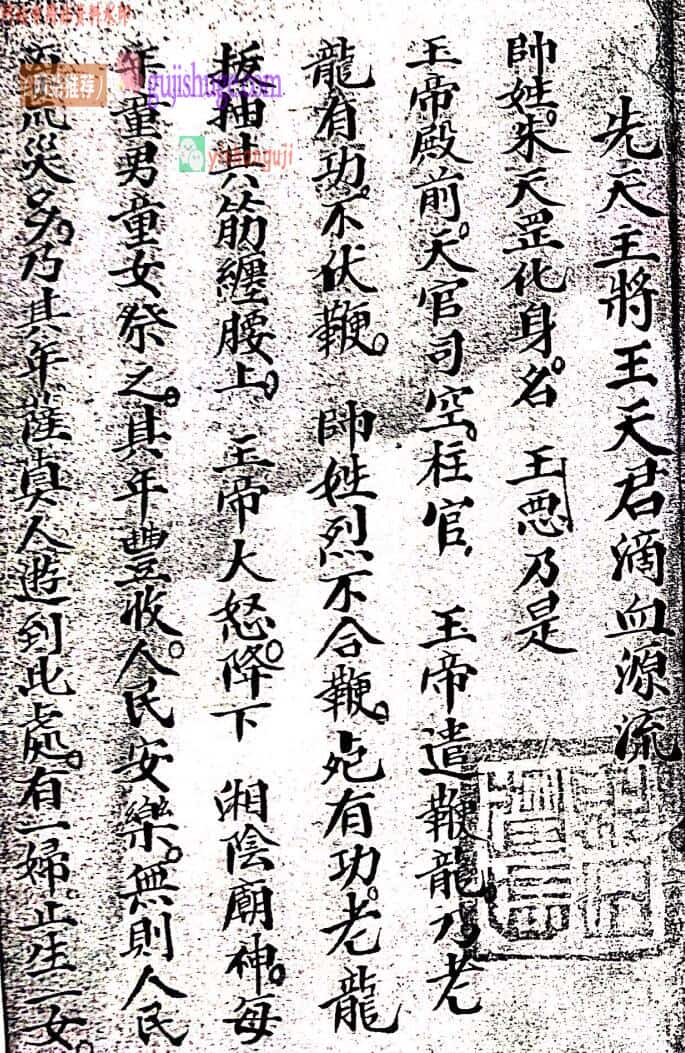 先天主將王天君滴血源流
帥姓。朱天罡化身。名 王惡乃是
玉帝殿前。天官司空。柱官 玉帝遣鞭龍。乃老
龍有功。不伏鞭。 帥姓烈不合鞭。有功。老龍
抽其筋纏腰上。 玉帝大怒。降下 湘陰廟神。每
年童男童女祭之。其年豐收。人民安樂。無則人民
荒災多。乃其年薩真人遊到此處。有一婦。止生一女。
gujishuge.com
推荐